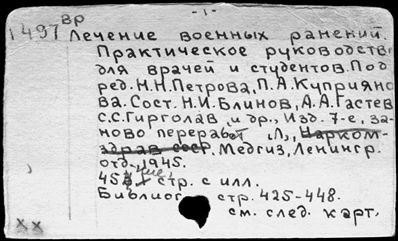 - 1 -
1497 вр Лечение военных ранений.
Практическое руководств
для врачей и студентов. Под
ред. Н.Н.Петрова, П.А.Куприяно
ва. Сост. Н.И.Блинов, А.А.Гастев
С.С.Гирголав и др., Изд. 7-е, за-
ново переработ Л., Нарком-
здрав ссср, Медгиз, Ленингр.
отд., 1945.
стр. с илл.
Библиог стр. 425-448.
см. след. карт.
xx